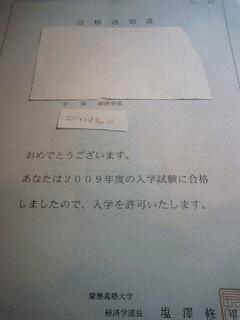 合格通知書
学部 経済学部
おめでとうございます。
あなたは２００９年度の入学試験に合格
しましたので、入学を許可いたします。
慶應義塾大学
経済学部長 塩澤修平